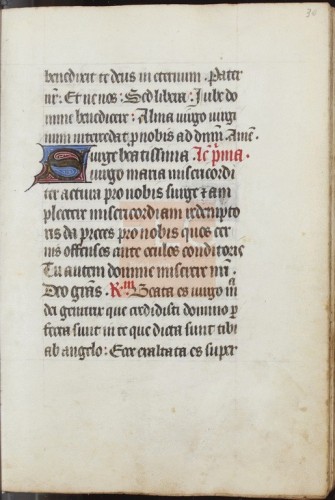 30
benedixit te deus in eternum. Pater
nr̄: Et ne nos: Sed libera: Iube do
mne benedicere: Alma uirgo uirgi
num intercedat p nobis ad dnm̄. Amē.
Surge beatissima. Lc̄ p̄ma.
uirgo maria misericordi
ter actum pro nobis surge ⁊ am
plectere misericordiam redempto
ris da preces pro nobis ques cer
nis offensos ante oculos conditoris
Tu autem domine miserere nr̄i.
Deo grās. Rm̄ Beata es uirgo mā
dei genitrix que credidisti domino p
fecta sunt in te que dicta sunt tibi
ab angelo: Ecce exaltata es super